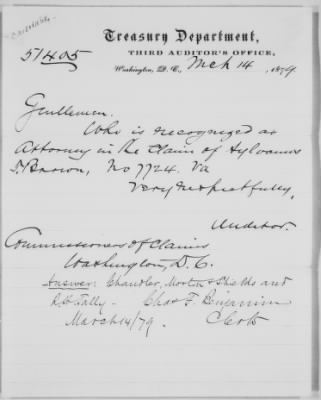 Treasury Department,
51405
THIRD AUDITOR'S OFFICE,
Washington, D. C., Mch 14, 1879.
Gentlemen.
Who is recognized as
Attorney in the Claim of Sylvanus
T. Brown, No 7724. Va
Very respectfully,
Auditor.
Commissioners of Claims
Washington, D. C.
Answer: Chandler, Morton & Shields and
R. H. Tally. Chas F. Benjamin
March 14/79. Clerk